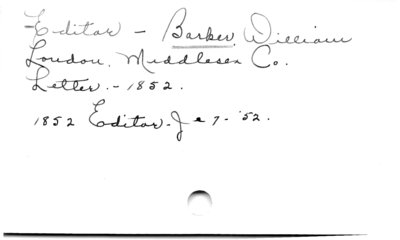 Editor - Barker, William
London, Middlesex Co.
Letter. - 1852.
1852 Editor - Je 7 - '52.